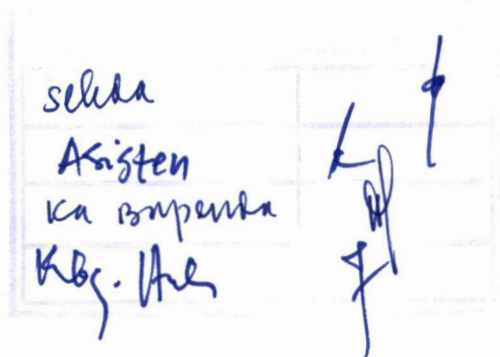 sekda
Asisten
Ka Bapenda
Kbg. Huk